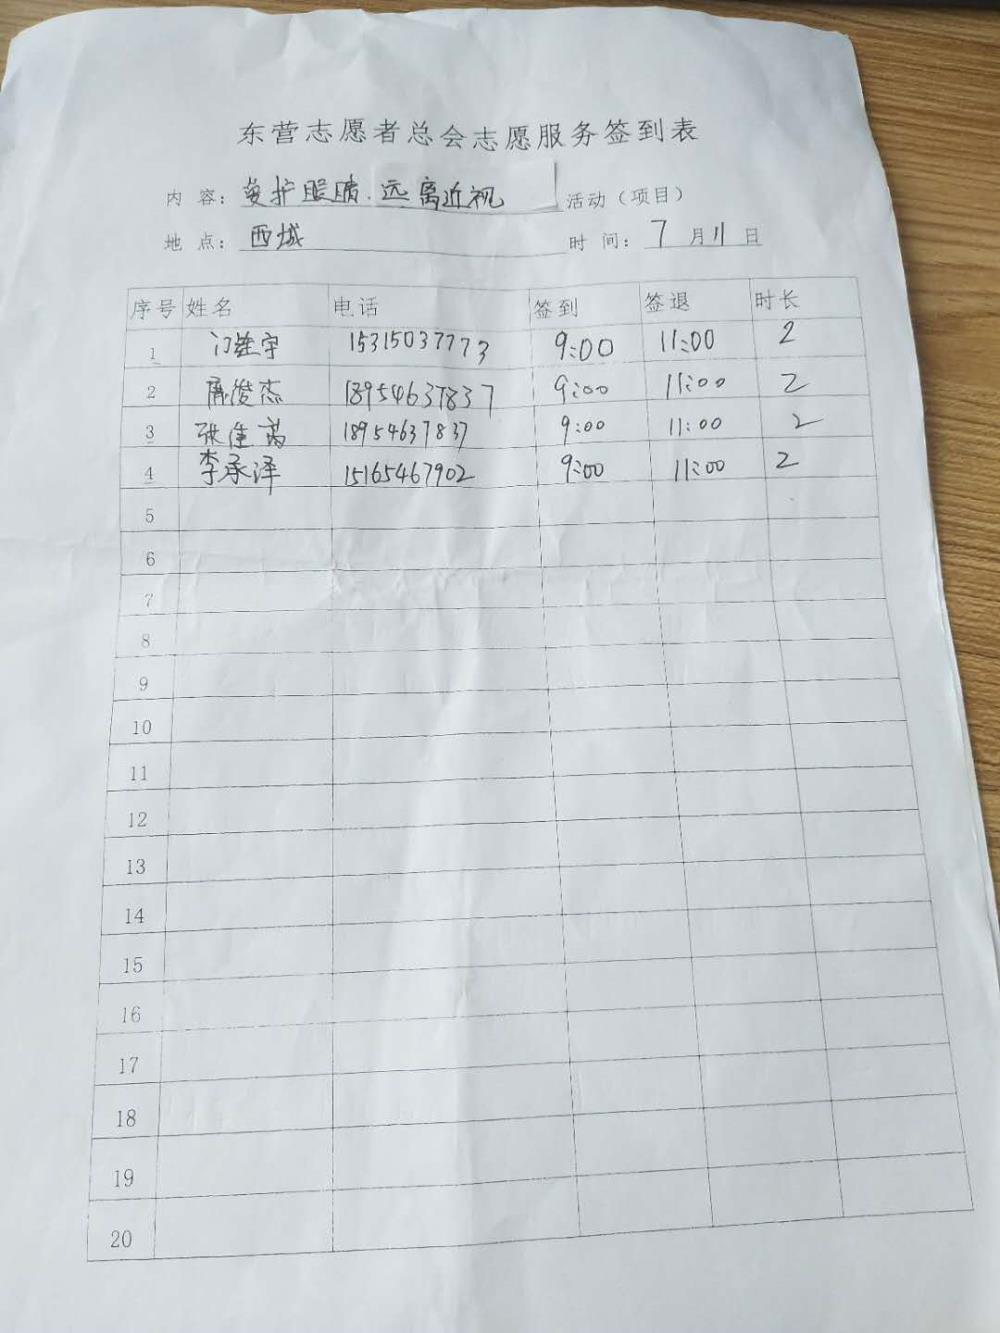 东营志愿者总会志愿服务签到表
内 容: 爱护眼睛.远离近视 活动(项目)
地 点: 西城 时 间: 7 月 11 日
序号 姓名 电话 签到 签退 时长
1 宇 15315037773 9:00 11:00 2
2 俊杰 18954637837 9:00 11:00 2
3 张佳 18954637837 9:00 11:00 2
4 李承泽 15165467902 9:00 11:00 2
5
6
7
8
9
10
11
12
13
14
15
16
17
18
19
20